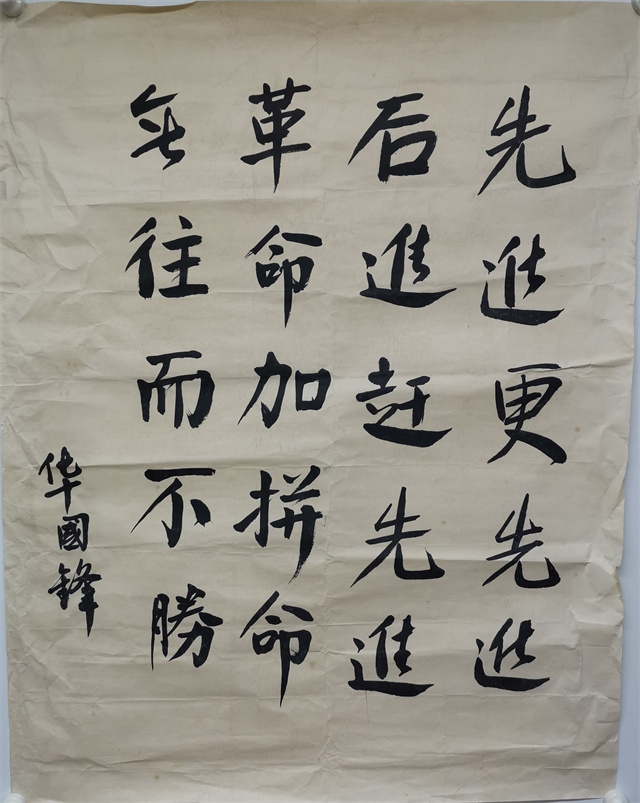 先進更先進
后進赶先進
革命加拼命
無往而不勝
华國鋒